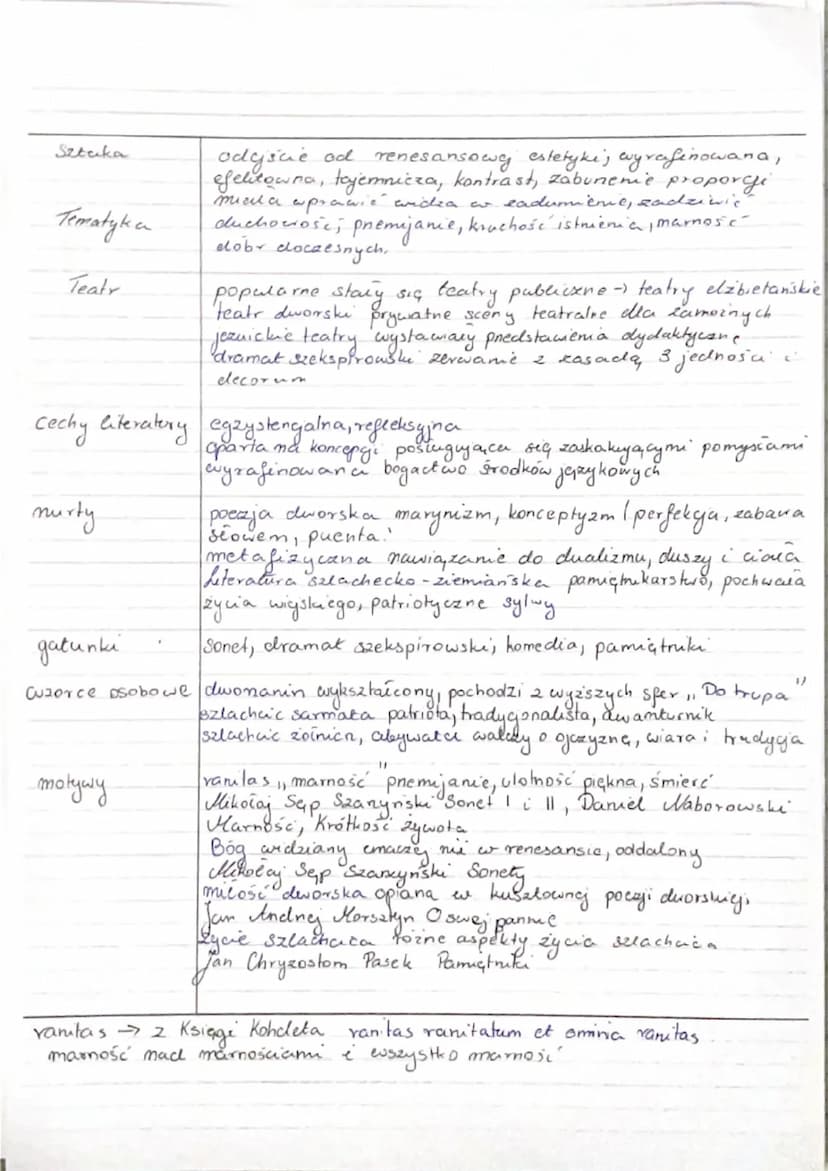 Sztuka odejście od renesansowej estetyki, wyrafinowana,
efektowna, tajemnicza, kontrast, zaburzenie proporcji
miała wprawić widza w zadumienie, zadziwić
Tematyka duchowość, przemijanie, kruchość istnienia, marność
dóbr doczesnych.
Teatr popularne stały się teatry publiczne → teatry elżbietańskie
teatr dworski prywatne sceny teatralne dla zamożnych
jezuickie teatry wystawiały przedstawienia dydaktyczne
dramat szekspirowski zerwanie z zasadą 3 jedności i
decorum
Cechy literatury egzystencjalna, refleksyjna
oparta na koncepcji posługująca się zaskakującymi pomysłami
wyrafinowana bogactwo środków językowych
nurty poezja dworska marynizm, konceptyzm (perfekcja, zabawa
słowem, puenta.
metafizyczna nawiązanie do dualizmu, duszy i ciała
Literatura szlachecko-ziemiańska pamiętnikarstwo, pochwała
życia wiejskiego, patriotyczne sylwy
gatunki sonet, dramat szekspirowski, komedia, pamiętniki
wzorce osobowe dworzanin wykształcony, pochodzi z wyższych sfer „Do trupa"
szlachcic sarmata patriota, tradycjonalista, awanturnik
szlachcic żołnierz, obywatel walczy o ojczyznę, wiara i tradycja
motywy vanitas „marność" przemijanie, ulotność piękna, śmierć
Mikołaj Sęp Szarzyński Sonet I i II, Daniel Naborowski
Marność, Krótkość żywota
Bóg widziany inaczej niż w renesansie, oddalony
Mikołaj Sęp Szarzyński Sonety
miłość dworska opiana w kusztownej poezji dworskiej,
Jan Andrzej Morsztyn O swej pannie
życie szlachcica różne aspekty życia szlachcica
Jan Chryzostom Pasek Pamiętniki
vanitas → z Księgi Koheleta vanitas vanitatum et omnia vanitas
marność nad marnościami i wszystko marność